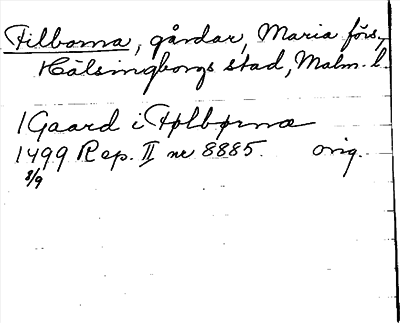 Filborna, gårdar, Maria förs.,
Hälsingborgs stad, Malm. l.
1 Gaard i Fylbyrnæ
1499 Rep. II nr 8885. orig.
8/9